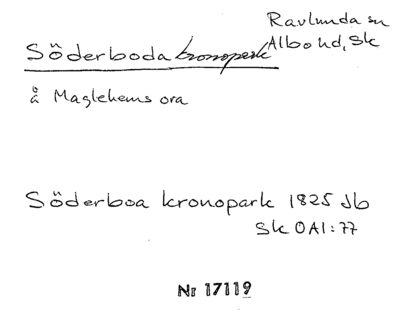 Ravlunda sn
Albo hd, Sk
Söderboda kronopark
å Maglehems ora
Söderboa kronopark 1825 Jb
Sk OAI:77
Nr 17119